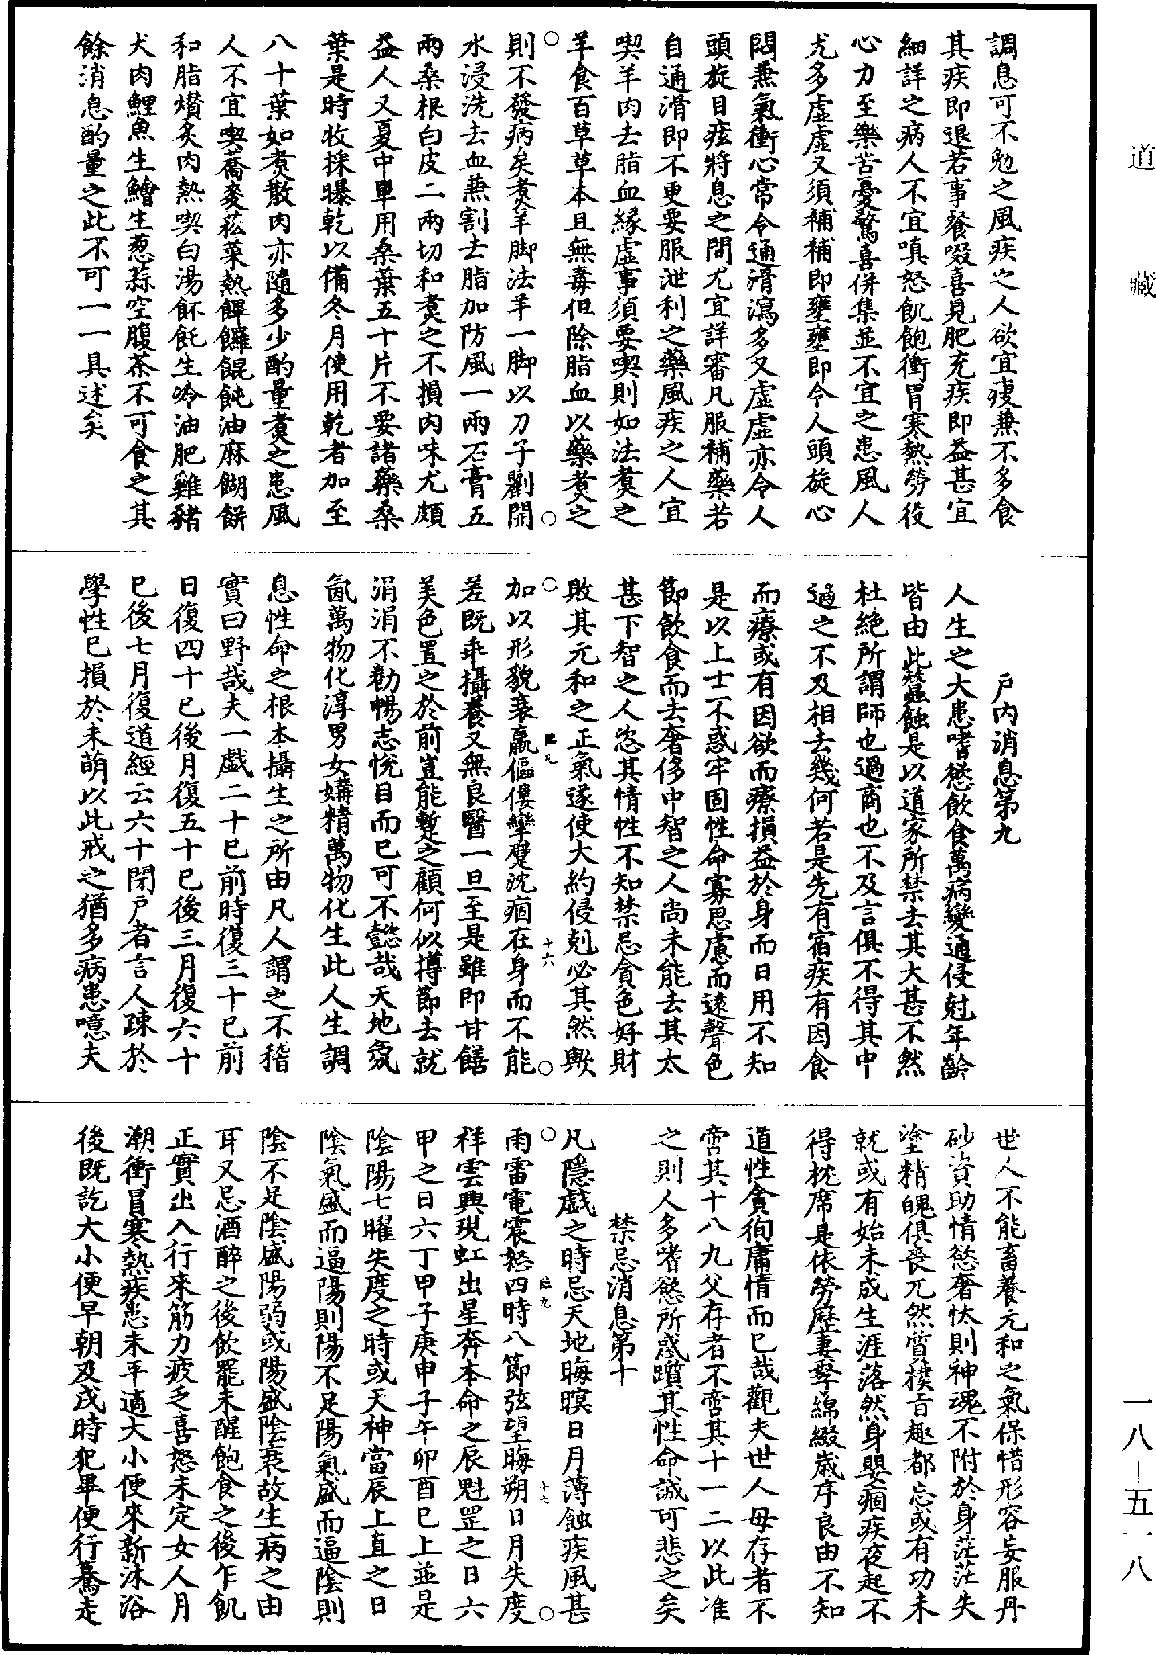 道藏
調息可不勉之風疾之人欲宜瘦兼不多食
其疾即退若事餐啜喜見肥充疾即益甚宜
細詳之病人不宜嗔怒飢飽衝冒寒熱勞役
心力至樂苦憂驚喜併集並不宜之患風人
尤多虛虛又須補補即壅壅即令人頭旋心
悶兼氣衝心常令通滑瀉多又虛虛亦令人
頭旋目痃將息之間尤宜詳審凡服補藥若
自通滑即不更要服泄利之藥風疾之人宜
喫羊肉去脂血緣虛事須要喫則如法煑之
羊食百草草本且無毒但除脂血以藥煑之
則不發病矣煑羊脚法羊一脚以刀子劉開
水浸洗去血兼割去脂加防風一兩石膏五
兩桑根白皮二兩切和煑之不損肉味尤頗
益人又夏中單用桑葉五十片不要諸藥桑
葉是時收採曝乾以備冬月使用乾者加至
八十葉如煑散肉亦隨多少酌量煑之患風
人不宜喫蕎麥菘菜熱饆饠餛飩油麻餬餅
和脂㸇炙肉熱喫白湯飥生冷油肥雞豬
犬肉鯉魚生鱠生葱蒜空腹茶不可食之其
餘消息酌量之此不可一一具述矣
戶內消息第九
人生之大患嗜慾飲食萬病變通侵尅年齡
皆由此蠶蝕是以道家所禁去其大甚不然
杜絕所謂師也過商也不及言俱不得其中
過之不及相去幾何若是先有宿疾有因食
而療或有因欲而療損益於身而日用不知
是以上士不惑牢固性命寡思慮而遠聲色
節飲食而去奢侈中智之人尚未能去其太
甚下智之人恣其情性不知禁忌貪色好財
敗其元和之正氣遂使大約侵剋必其然歟
加以形貌衰羸傴僂攣躄沈痼在身而不能
差既乖攝養又無良醫一旦至是雖即甘饍
美色置之於前豈能蹔之顧何似撙節去就
涓涓不勸暢志悅目而已可不懿哉天地氤
氳萬物化淳男女媾精萬物化生此人生調
息性命之根本攝生之所由凡人謂之不稽
實曰野哉夫一戲二十已前時復三十已前
日復四十已後月復五十已後三月復六十
已後七月復道經云六十閉戶者言人疎於
學性已損於未萌以此戒之猶多病患噫夫
世人不能畜養元和之氣保惜形容妄服丹
砂資助情慾奢怢則神魂不附於身茫茫失
塗精魄俱喪兀然瞢䁾百趣都忘或有功未
就或有始未成生涯落然身嬰痼疾夜起不
得枕席是依勞歷妻孥綿綴歲序良由不知
道性貪徇庸情而已哉觀夫世人毋存者不
啻其十八九父存者不啻其十一二以此准
之則人多嗜慾所惑躓其性命誠可悲之矣
禁忌消息第十
凡隱戲之時忌天地晦暝日月薄蝕疾風甚
雨雷電震怒四時八節弦望晦朔日月失度
祥雲興現虹出星奔本命之辰魁罡之日六
甲之日六丁甲子庚申子午卯酉已上並是
陰陽七曜失度之時或天神當辰上直之日
陰氣盛而逼陽則陽不足陽氣盛而逼陰則
陰不足陰盛陽弱或陽盛陰衰故生病之由
耳又忌酒醉之後飲罷未醒飽食之後乍飢
正實出入行來筋力疲乏喜怒未定女人月
潮衝冒寒熱疾患未平適大小便來新沐浴
後既訖大小便早朝及戌時犯畢便行驀走
臨九
十六
臨九
十七
一八—五一八